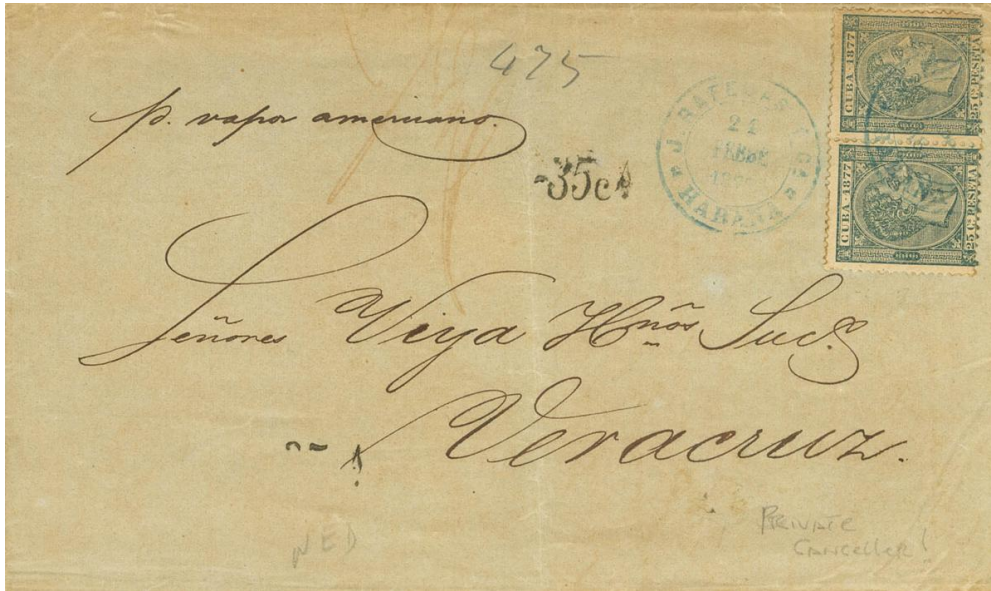 475
p. vapor americano.
35c
J. RAFECAS Y Ca.
21
FEBRE
HABANA
CUBA · 1877
25 C. PESETA
CUBA · 1877
25 C. PESETA
Señores Viya Hnos Suc.
Veracruz.
NED
PRIVATE
Canceller!